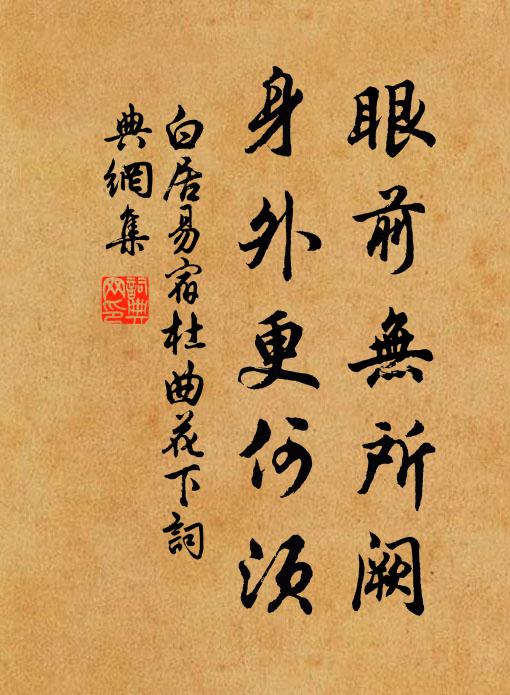 眼前無所闕
身外更何須
白居易宿杜曲花下詞
典網集
詞典
网印